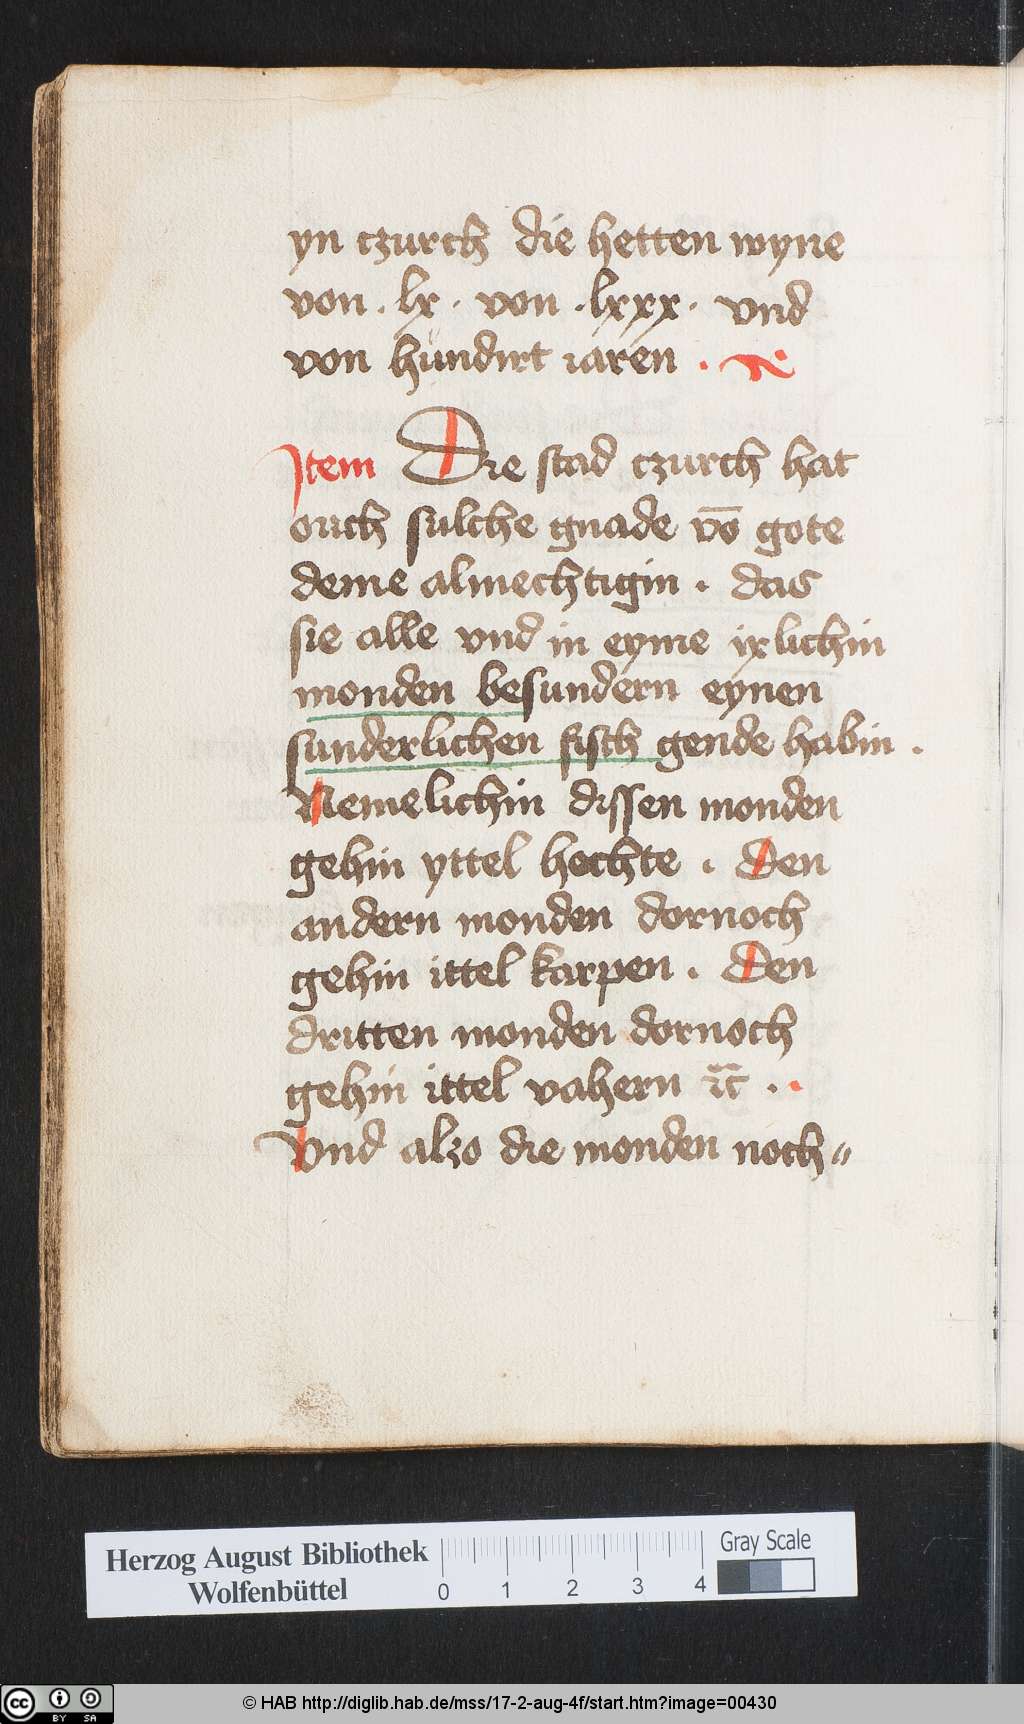 yn czurch die hetten wyne
von . lx . von . lxxx . vnd
von hundirt iaren .
Item Die stad czurch hat
ouch sulche gnade vō gote
deme almechtigin . das
sie alle vnd in eyme ixlichin
monden besundern eynen
sunderlichen fisch gende habin .
Nemelichin dissen monden
gehin yttel hechte . Den
andern monden dornoch
gehin ittel karpen . Den
dritten monden dornoch
gehin ittel vahern ⁊c̄ . .
Vnd alzo die monden noch〃
Herzog August Bibliothek
Wolfenbüttel
0 1 2 3 4
Gray Scale
cc BY SA
© HAB http://diglib.hab.de/mss/17-2-aug-4f/start.htm?image=00430